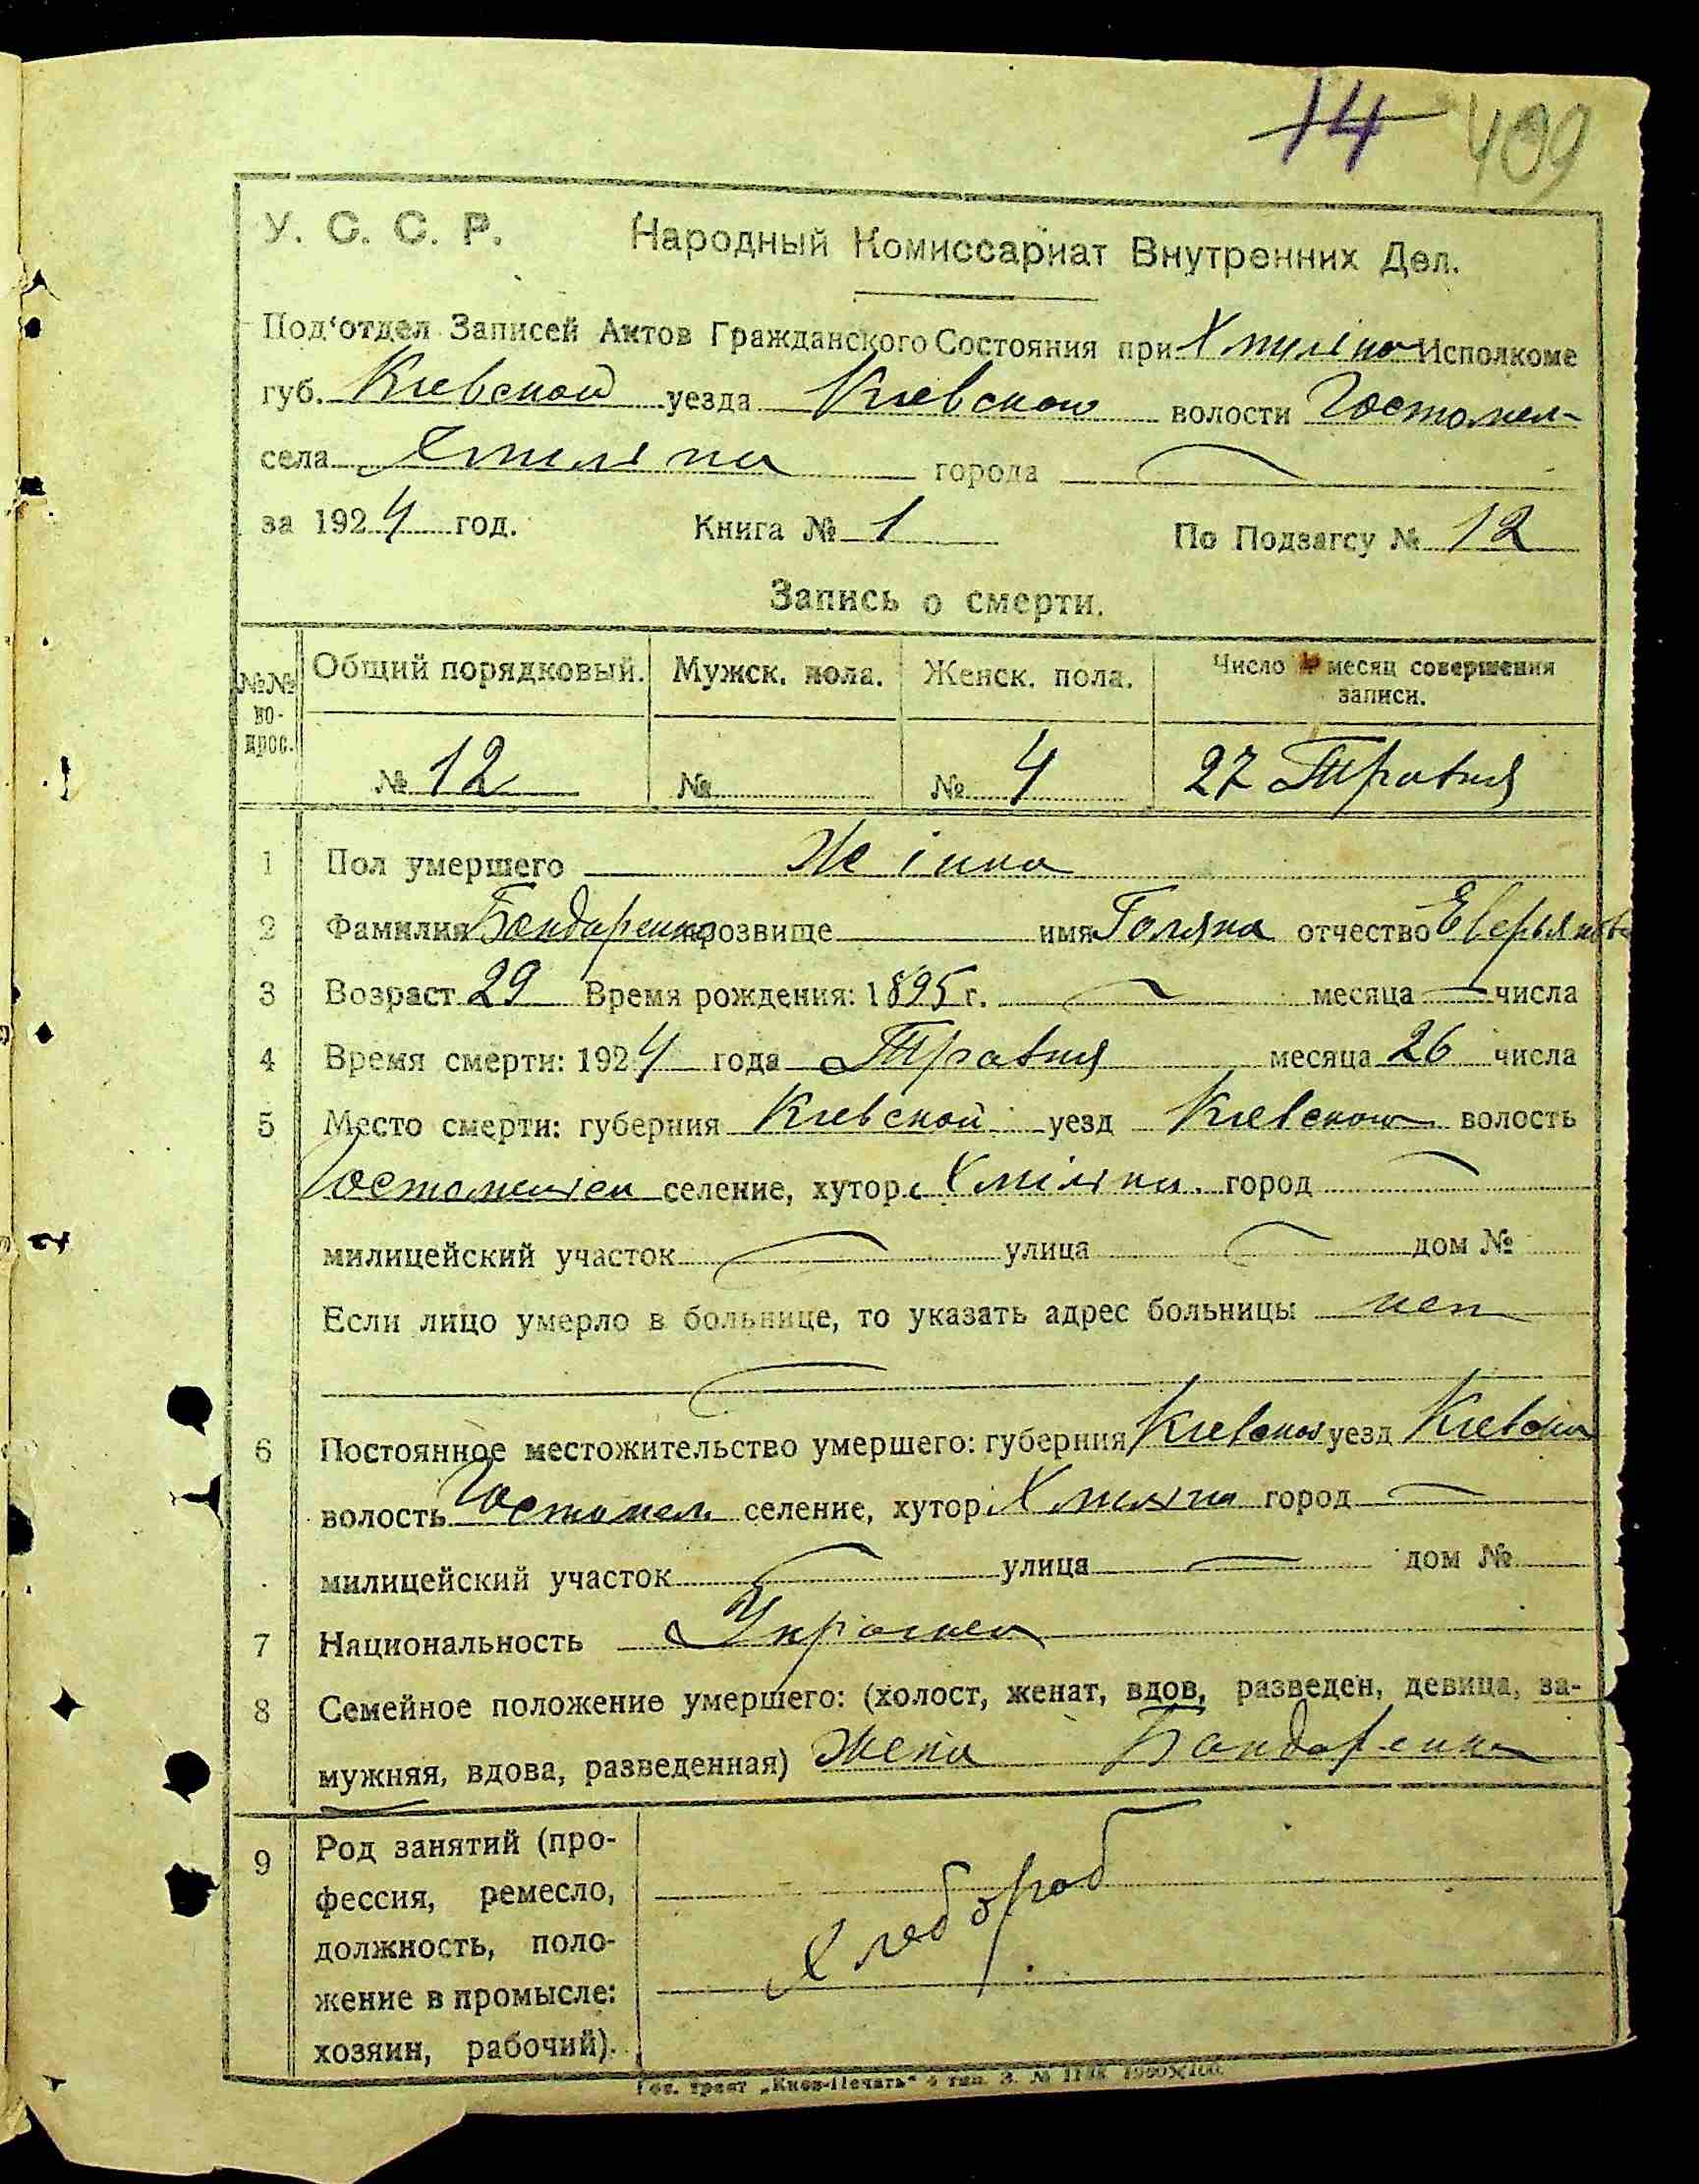 14 499
У. С. С. Р. Народный Комиссариат Внутренних Дел.
Под‘отдел Записей Актов Гражданского Состояния при Исполкоме
губ. Киевской уезда Киевской волости Гостомел-
села города
за 1924 год. Книга № 1 По Подзагсу № 12
Запись о смерти.
№№ во-прос. Общий порядковый. Мужск. пола. Женск. пола. Число и месяц совершения записи.
№ 12 № № 4 27 Травня
1 Пол умершего Жінка
2 Фамилия Бондаренко прозвище имя отчество
3 Возраст 29 Время рождения: 1895 г. месяца числа
4 Время смерти: 1924 года Травня месяца 26 числа
5 Место смерти: губерния Киевской уезд Киевской волость
селение, хутор город
милицейский участок улица дом №
Если лицо умерло в больнице, то указать адрес больницы нет
6 Постоянное местожительство умершего: губерния Киевской уезд Киевской
волость Гостомел селение, хутор город
милицейский участок улица дом №
7 Национальность
8 Семейное положение умершего: (холост, женат, вдов, разведен, девица, за-
мужняя, вдова, разведенная) жена Бондаренка
9 Род занятий (про-
фессия, ремесло,
должность, поло-
жение в промысле:
хозяин, рабочий).
Хлебороб
Гос. трест „Киев-Печать“